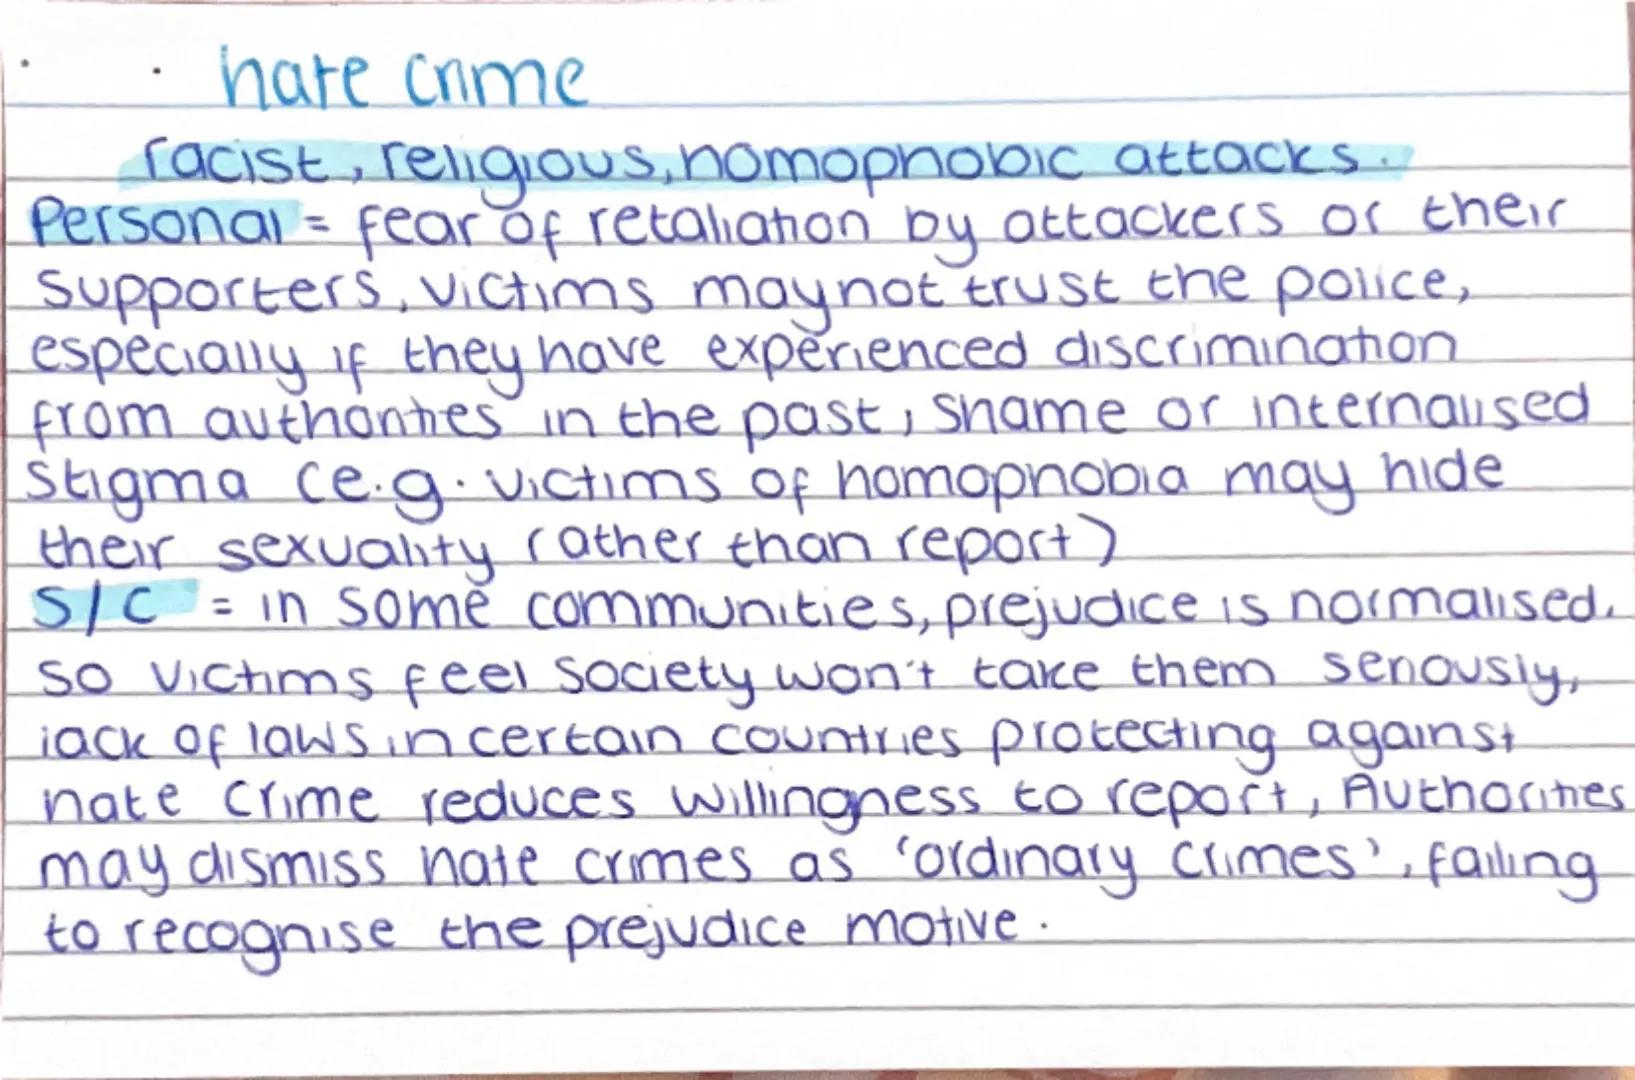 hate crime
racist, religious, homophobic attacks.
Personal = fear of retaliation by attackers or their
supporters, victims may not trust the police,
especially if they have experienced discrimination
from authorities in the past, shame or internalised
stigma (e.g. victims of homophobia may hide
their sexuality rather than report)
S/C = in some communities, prejudice is normalised.
so victims feel society won't take them seriously,
lack of laws in certain countries protecting against
hate crime reduces willingness to report, Authorities
may dismiss hate crimes as 'ordinary crimes', failing
to recognise the prejudice motive.